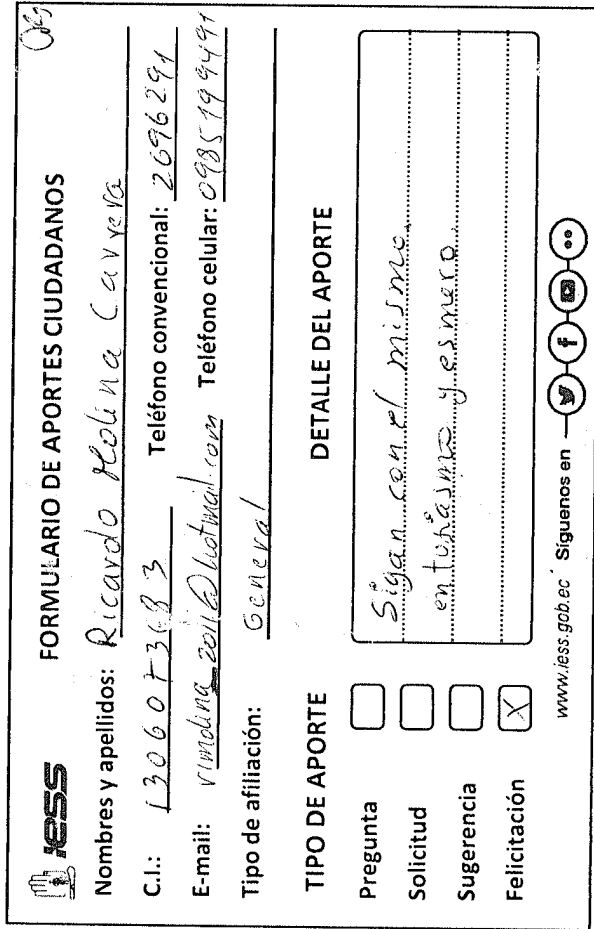 iess FORMULARIO DE APORTES CIUDADANOS
Nombres y apellidos: Ricardo Molina Carrera
C.I.: Teléfono convencional: 2696291
E-mail: rimolina_2011@hotmail.com Teléfono celular: 0985199491
Tipo de afiliación: General
TIPO DE APORTE DETALLE DEL APORTE
Pregunta
Solicitud
Sugerencia
Felicitación X
Sigan con el mismo
entusiasmo y esmero.
www.iess.gob.ec Síguenos en